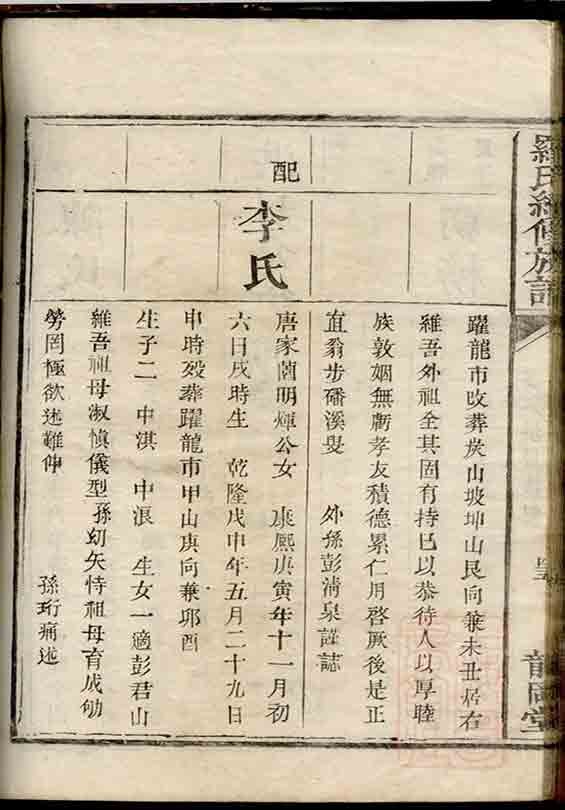 羅氏續修族譜
龍岡堂
躍龍市改葬炭山坡坤山艮向兼未丑居右
維吾外祖全其固有持已以恭待人以厚睦
族敦姻無虧孝友積德累仁用啓厥後是正
直翁步磻溪叟 外孫彭清泉謹誌
配
李氏
唐家薗明煇公女 康熙庚寅年十一月初
六日戌時生 乾隆戊申年五月二十九日
申時歿葬躍龍市甲山庚向兼卯酉
生子二 中淇 中浪 生女一適彭君山
維吾祖母淑慎儀型孫幼失恃祖母育成劬
勞罔極欲述難伸 孫珩痛述